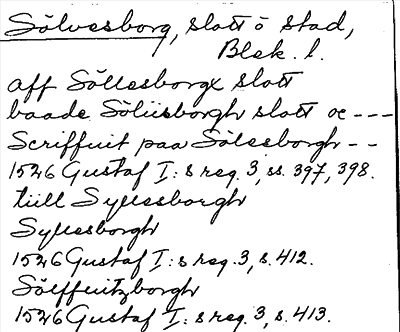 Sölvesborg, slott o stad,
Blek. l.
aff Söllesborgx slott
baade Söliisborgh slott oc ---
Scriffuit paa Sölesborgh --
1526 Gustaf I:s reg. 3, ss. 397, 398.
tiill Syllesborgh
Syllesborgh
1526 Gustaf I:s reg. 3, s. 412.
Sölffuitzborgh
1526 Gustaf I:s reg. 3, s. 413.